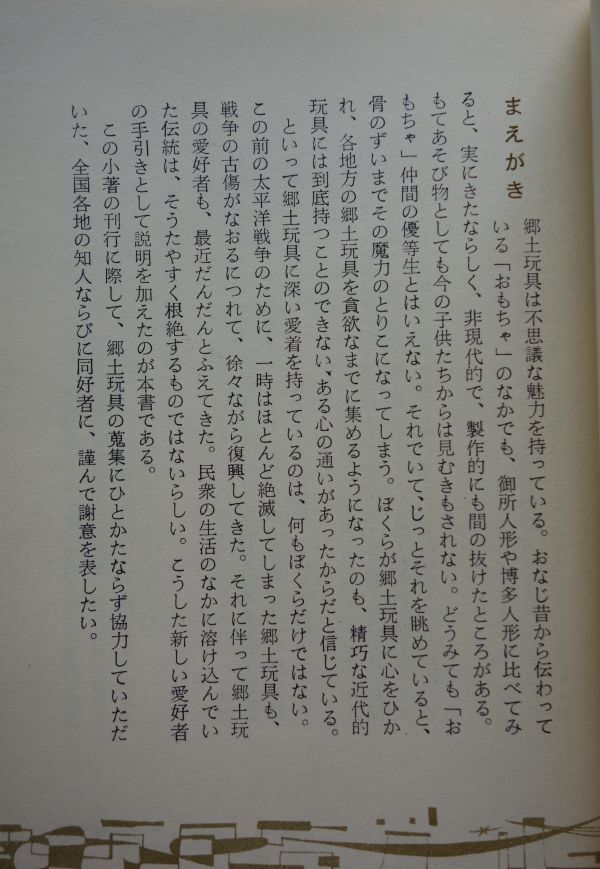 まえがき
郷土玩具は不思議な魅力を持っている。おなじ昔から伝わって
いる「おもちゃ」のなかでも、御所人形や博多人形に比べてみ
ると、実にきたならしく、非現代的で、製作的にも間の抜けたところがある。
もてあそび物としても今の子供たちからは見むきもされない。どうみても「お
もちゃ」仲間の優等生とはいえない。それでいて、じっとそれを眺めていると、
骨のずいまでその魔力のとりこになってしまう。ぼくらが郷土玩具に心をひか
れ、各地方の郷土玩具を貪欲なまでに集めるようになったのも、精巧な近代的
玩具には到底持つことのできない、ある心の通いがあったからだと信じている。
といって郷土玩具に深い愛着を持っているのは、何もぼくらだけではない。
この前の太平洋戦争のために、一時はほとんど絶滅してしまった郷土玩具も、
戦争の古傷がなおるにつれて、徐々ながら復興してきた。それに伴って郷土玩
具の愛好者も、最近だんだんとふえてきた。民衆の生活のなかに溶け込んでい
た伝統は、そうたやすく根絶するものではないらしい。こうした新しい愛好者
の手引きとして説明を加えたのが本書である。
この小著の刊行に際して、郷土玩具の蒐集にひとかたならず協力していただ
いた、全国各地の知人ならびに同好者に、謹んで謝意を表したい。